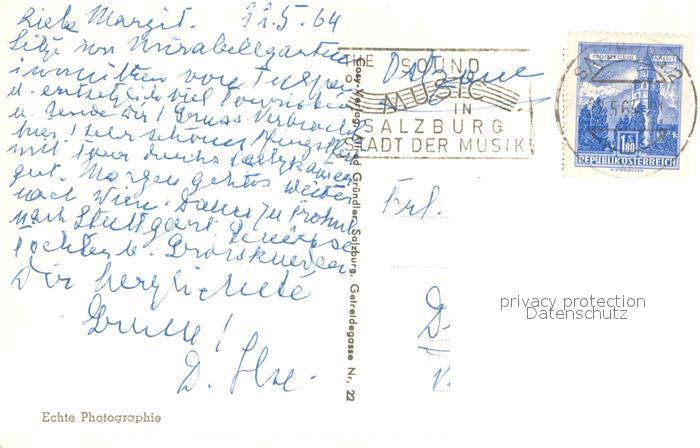 Liebe Margit. 22.5.64
Sitze im Mirabellgarten
inmitten von Tulpen
u. entsetzlich viel Touristen
u. sende Dir 1 Gruss. Verbrachte
hier 1 sehr schönes Pfingsten
mit Tour durchs Salzkammer
gut. Morgen gehts weiter
nach Wien. Dann zu
nach Stuttgart
Töchter u. Grosskinder
Dir herzlichste
Grüsse!
D. Ilse.
Echte Photographie
Cosy-Verlag Alfred Gründler, Salzburg, Getreidegasse Nr. 22
THE SOUND
OF
MUSIC
IN
SALZBURG
STADT DER MUSIK
1.80
REPUBLIK ÖSTERREICH
Frl.
D
privacy protection
Datenschutz